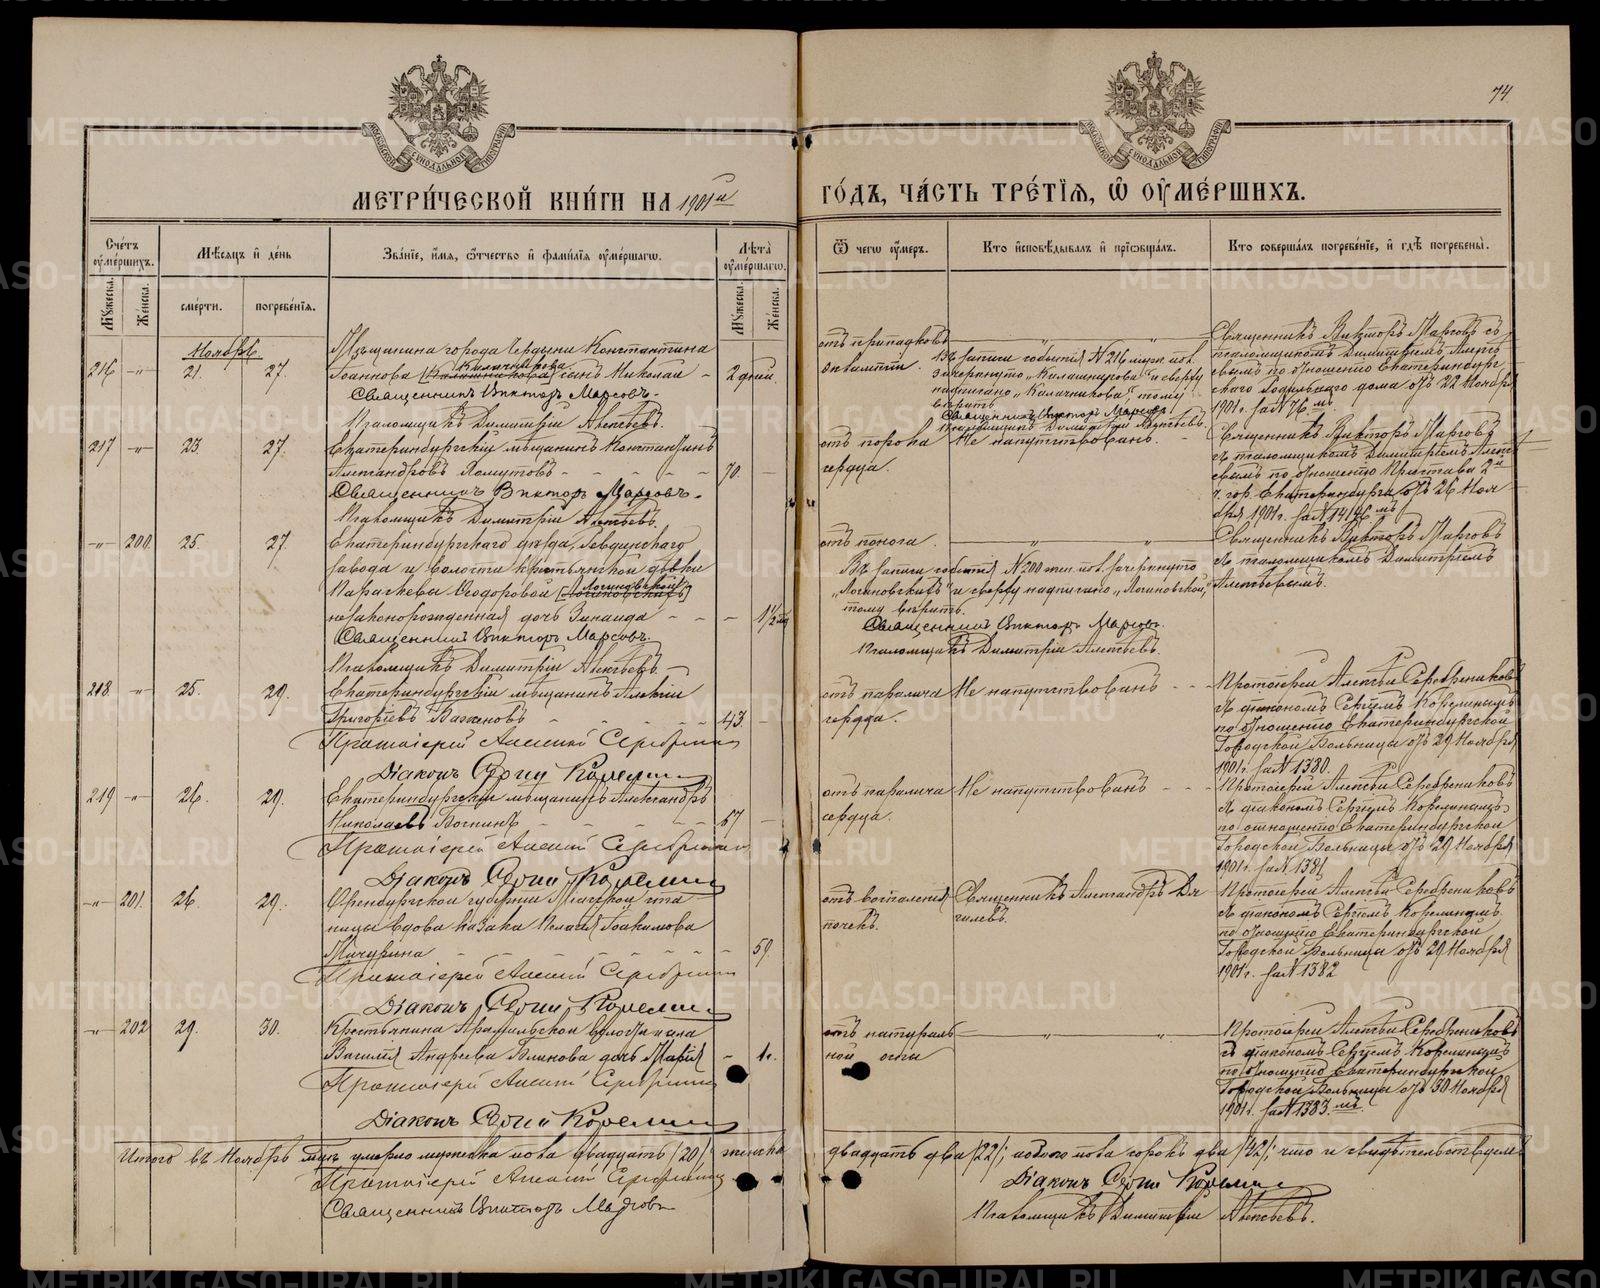 74
МОСКОВСКОЙ СѴНОДАЛЬНОЙ ТИПОГРАФІИ
МОСКОВСКОЙ СѴНОДАЛЬНОЙ ТИПОГРАФІИ
МЕТРИ́ЧЕСКОЙ КНИ́ГИ НА 1901й ГО́ДЪ, ЧА́СТЬ ТРЕ́ТІѦ, Ѡ ОУМЕ́РШИХЪ.
Сче́тъ оуме́ршихъ.
Мѣ́сяцъ и де́нь
Зва́ніе, и́мя, ѻ҆́тчество и фами́лія оуме́ршагѡ.
Лѣта̀ оуме́ршагѡ.
Ѿ чегѡ̀ оу́меръ.
Кто̀ исповѣ́дывалъ и пріѡбща́лъ.
Кто̀ соверша́лъ погребе́ніе, и гдѣ̀ погребены̀.
Му́жеска.
Же́нска.
сме́рти.
погребе́нія.
Му́жеска.
Же́нска.
Ноябрь
216 -"- 21. 27.
Мѣщанина города Чердыни Константина
Калачникова
Іоаннова [Калашникова] сынъ Николай - 2 дней
Священникъ Викторъ Марсовъ.
Псаломщикъ Димитрій Алексѣевъ.
отъ припадковъ
эклампсіи.
Въ записи событія № 216 муж. пол.
зачеркнуто „Калашникова" и сверху
надписано „Калачникова", тому
вѣрить.
Священникъ Викторъ Марсовъ.
Псаломщикъ Димитрій Алексѣевъ.
Священникъ Викторъ Марсовъ съ
псаломщикомъ Димитріемъ Алексѣ-
евымъ по отношенію Екатеринбург-
скаго Родильнаго дома отъ 22 Ноября
1901 г. за № 76 мъ.
217 -"- 23. 27.
Екатеринбургскій мѣщанинъ Константинъ
Александровъ Хомутовъ - - - - 70. -
Священникъ Викторъ Марсовъ.
Псаломщикъ Димитрій Алексѣевъ.
отъ порока
сердца.
Не напутствованъ.
Священникъ Викторъ Марсовъ
съ псаломщикомъ Димитріемъ Алексѣ-
евымъ по отношенію Пристава 2й
ч. гор. Екатеринбурга отъ 26 Ноя-
бря 1901 г. за № 14146 мъ
-"- 200. 25. 27.
Екатеринбургскаго уѣзда, Ревдинскаго
завода и волости крестьянской дѣвки
Логиновской
Параскевы Ѳеодоровой [Логиновскихъ]
незаконорожденная дочь Зинаида - - - 1 1/2 м
Священникъ Викторъ Марсовъ.
Псаломщикъ Димитрій Алексѣевъ.
отъ поноса.
Въ записи событія № 200 жен. пол. зачеркнуто
„Логиновскихъ" и сверху надписано „Логиновской",
тому вѣрить.
Священникъ Викторъ Марсовъ.
Псаломщикъ Димитрій Алексѣевъ.
Священникъ Викторъ Марсовъ
съ псаломщикомъ Димитріемъ
Алексѣевымъ.
218. -"- 25. 29.
Екатеринбургскій мѣщанинъ Алексій
Григоріевъ Баженовъ - - - - 43 -
Протоіерей Алексій Серебрениковъ
Діаконъ Сергій Корелинъ
отъ паралича
сердца.
Не напутствованъ - -
Протоіерей Алексѣй Серебрениковъ
съ діакономъ Сергіемъ Корелинымъ
по отношенію Екатеринбургской
Городской Больницы отъ 29 Ноября
1901 г. за № 1380.
219 -"- 26. 29.
Екатеринбургскій мѣщанинъ Александръ
Николаевъ Вогинъ - - - - 57 -
Протоіерей Алексій Серебрениковъ
Діаконъ Сергій Корелинъ
отъ паралича
сердца.
Не напутствованъ - - -
Протоіерей Алексѣй Серебрениковъ
съ діакономъ Сергіемъ Корелинымъ
по отношенію Екатеринбургской
Городской Больницы отъ 29 Ноября
1901 г. за № 1381
-"- 201. 26. 29.
Оренбургской губерніи Магнитной ста-
ницы вдова казака Пелагія Іоакимова
Мичурина - - - - - - 59.
Протоіерей Алексій Серебрениковъ
Діаконъ Сергій Корелинъ
отъ воспаленія
почекъ.
Священникъ Александръ Дя-
гилевъ.
Протоіерей Алексѣй Серебрениковъ
съ діакономъ Сергіемъ Корелинымъ
по отношенію Екатеринбургской
Городской Больницы отъ 29 Ноября
1901 г. за № 1382
-"- 202 29. 30.
Крестьянина Арамильской волости села
Василія Андреева Блинова дочь Марія - 1 г.
Протоіерей Алексій Серебрениковъ
Діаконъ Сергій Корелинъ
отъ натураль-
ной оспы
Протоіерей Алексѣй Серебрениковъ
съ діакономъ Сергіемъ Корелинымъ
по отношенію Екатеринбургской
Городской Больницы отъ 30 Ноября
1901 г. за № 1383 мъ.
Итого въ Ноябрѣ мцѣ умерло мужеска пола двадцать /20/ женска двадцать два /22/, обоего пола сорокъ два /42/; что и свидѣтельствуемъ
Протоіерей Алексій Серебрениковъ
Діаконъ Сергій Корелинъ
Священникъ Викторъ Марсовъ
Псаломщикъ Димитрій Алексѣевъ.
METRIKI.GASO-URAL.RU